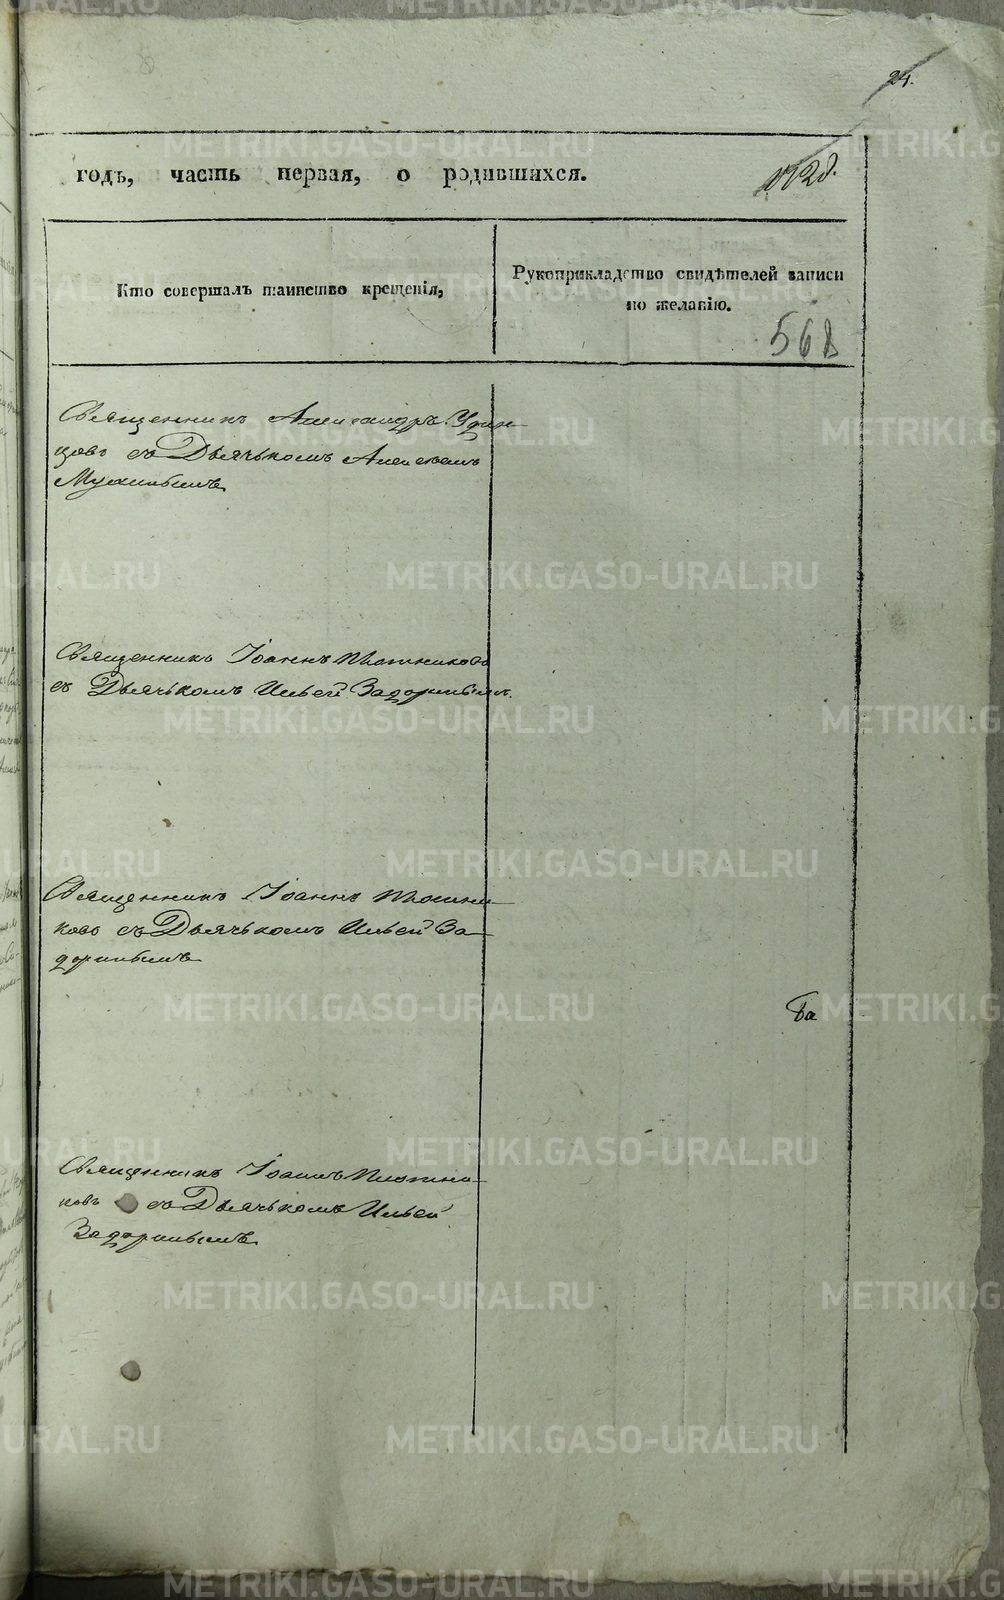 24.
годъ, часть первая, о родившихся.
Кто совершалъ таинство крещенія,
Рукоприкладство свидѣтелей записи
по желанію.
568
Священникъ Александръ Удин-
цовъ съ Дьячькомъ Алексѣемъ
Мухинымъ
Священникъ Іоаннъ Плотниковъ
съ Дьячькомъ Ильей Задоринымъ.
Священникъ Іоаннъ Плотни-
ковъ съ Дьячькомъ Ильей За-
доринымъ
Священникъ Іоаннъ Плотни-
ковъ съ Дьячькомъ Ильей
Задоринымъ
METRIKI.GASO-URAL.RU